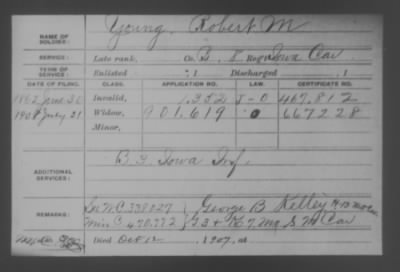 NAME OF SOLDIER: Young, Robert M
SERVICE: Late rank, Co. B, 8 Reg't Iowa Cav
TERM OF SERVICE: Enlisted , 1 Discharged , 1
DATE OF FILING. CLASS. APPLICATION NO. LAW. CERTIFICATE NO.
June 30 Invalid, 1,352 467,812
1908 July 31 Widow, 901,619 667228
Minor,
ADDITIONAL SERVICES: B. 3. Iowa Inf.
REMARKS: C 338027 George B Kelley
Min C 470,772 G 3 + K 7, Mo, S M Cav
Died Oct 12, 1907, at